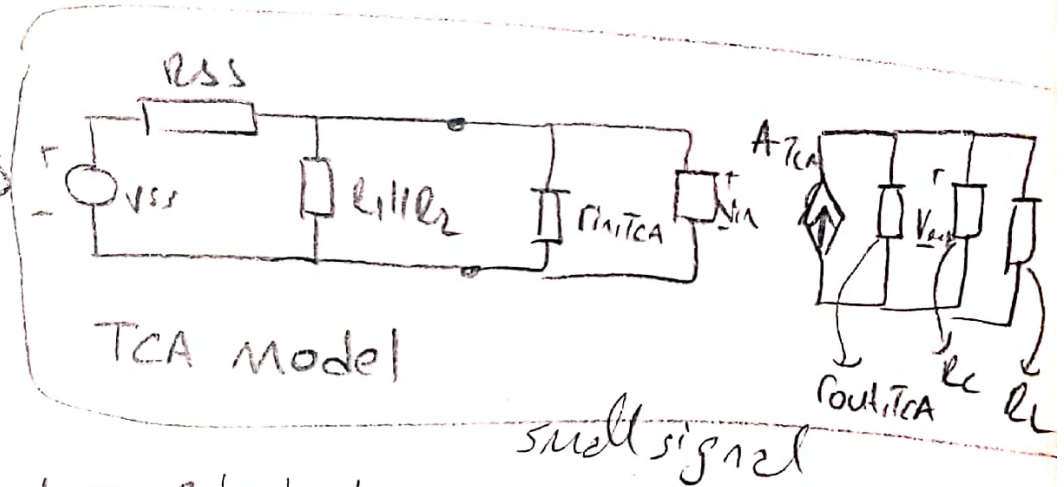 RSS
+
-
VSS
R1||R2
rin,TCA
+
Vin
-
ATCA
+
-
rout,TCA
RC
RL
TCA Model
small signal